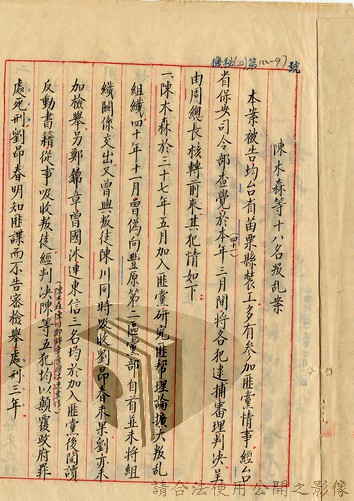 機秘(二)第122-97號
陳木森等十八名叛乱案
本案被告均台省苗栗縣裝工多有參加匪黨情事經台
省保安司令部查覺於本年三月間將各犯逮捕審理判決呈
(四十)
由周總長核轉前來其犯情如下
一、陳木森於三十七年五月加入匪黨研究匪幫理論擴大叛乱
組織四十年十一月曾偽向豐原第二區黨部自首並未將組
織關係交出又曾與叛徒陳川同時吸收劉昂春未果劉亦未
加檢舉另鄭錦章曾國沐連東信三名均於加入匪黨後閱讀
反動書籍從事吸收叛徒經判決陳等五犯均以顛覆政府罪
處死刑劉昂春明知匪諜而不告密檢舉處刑三年
請合法使用公開之影像